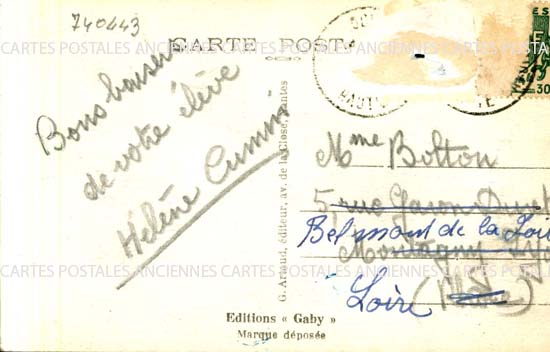 740443
CARTE POST
Bons baisers
de votre élève
Hélène
G. Artaud, éditeur, av. de la Close, Nantes
Editions « Gaby »
Marque déposée
30
Mme Bolton
5, rue
Belmont de la
Montagny
Loire
CARTES POSTALES ANCIENNES CARTES POSTALES ANCIENNES CARTES POSTALES ANCIENNES
CARTES POSTALES ANCIENNES CARTES POSTALES ANCIENNES CARTES POSTALES ANCIENNES